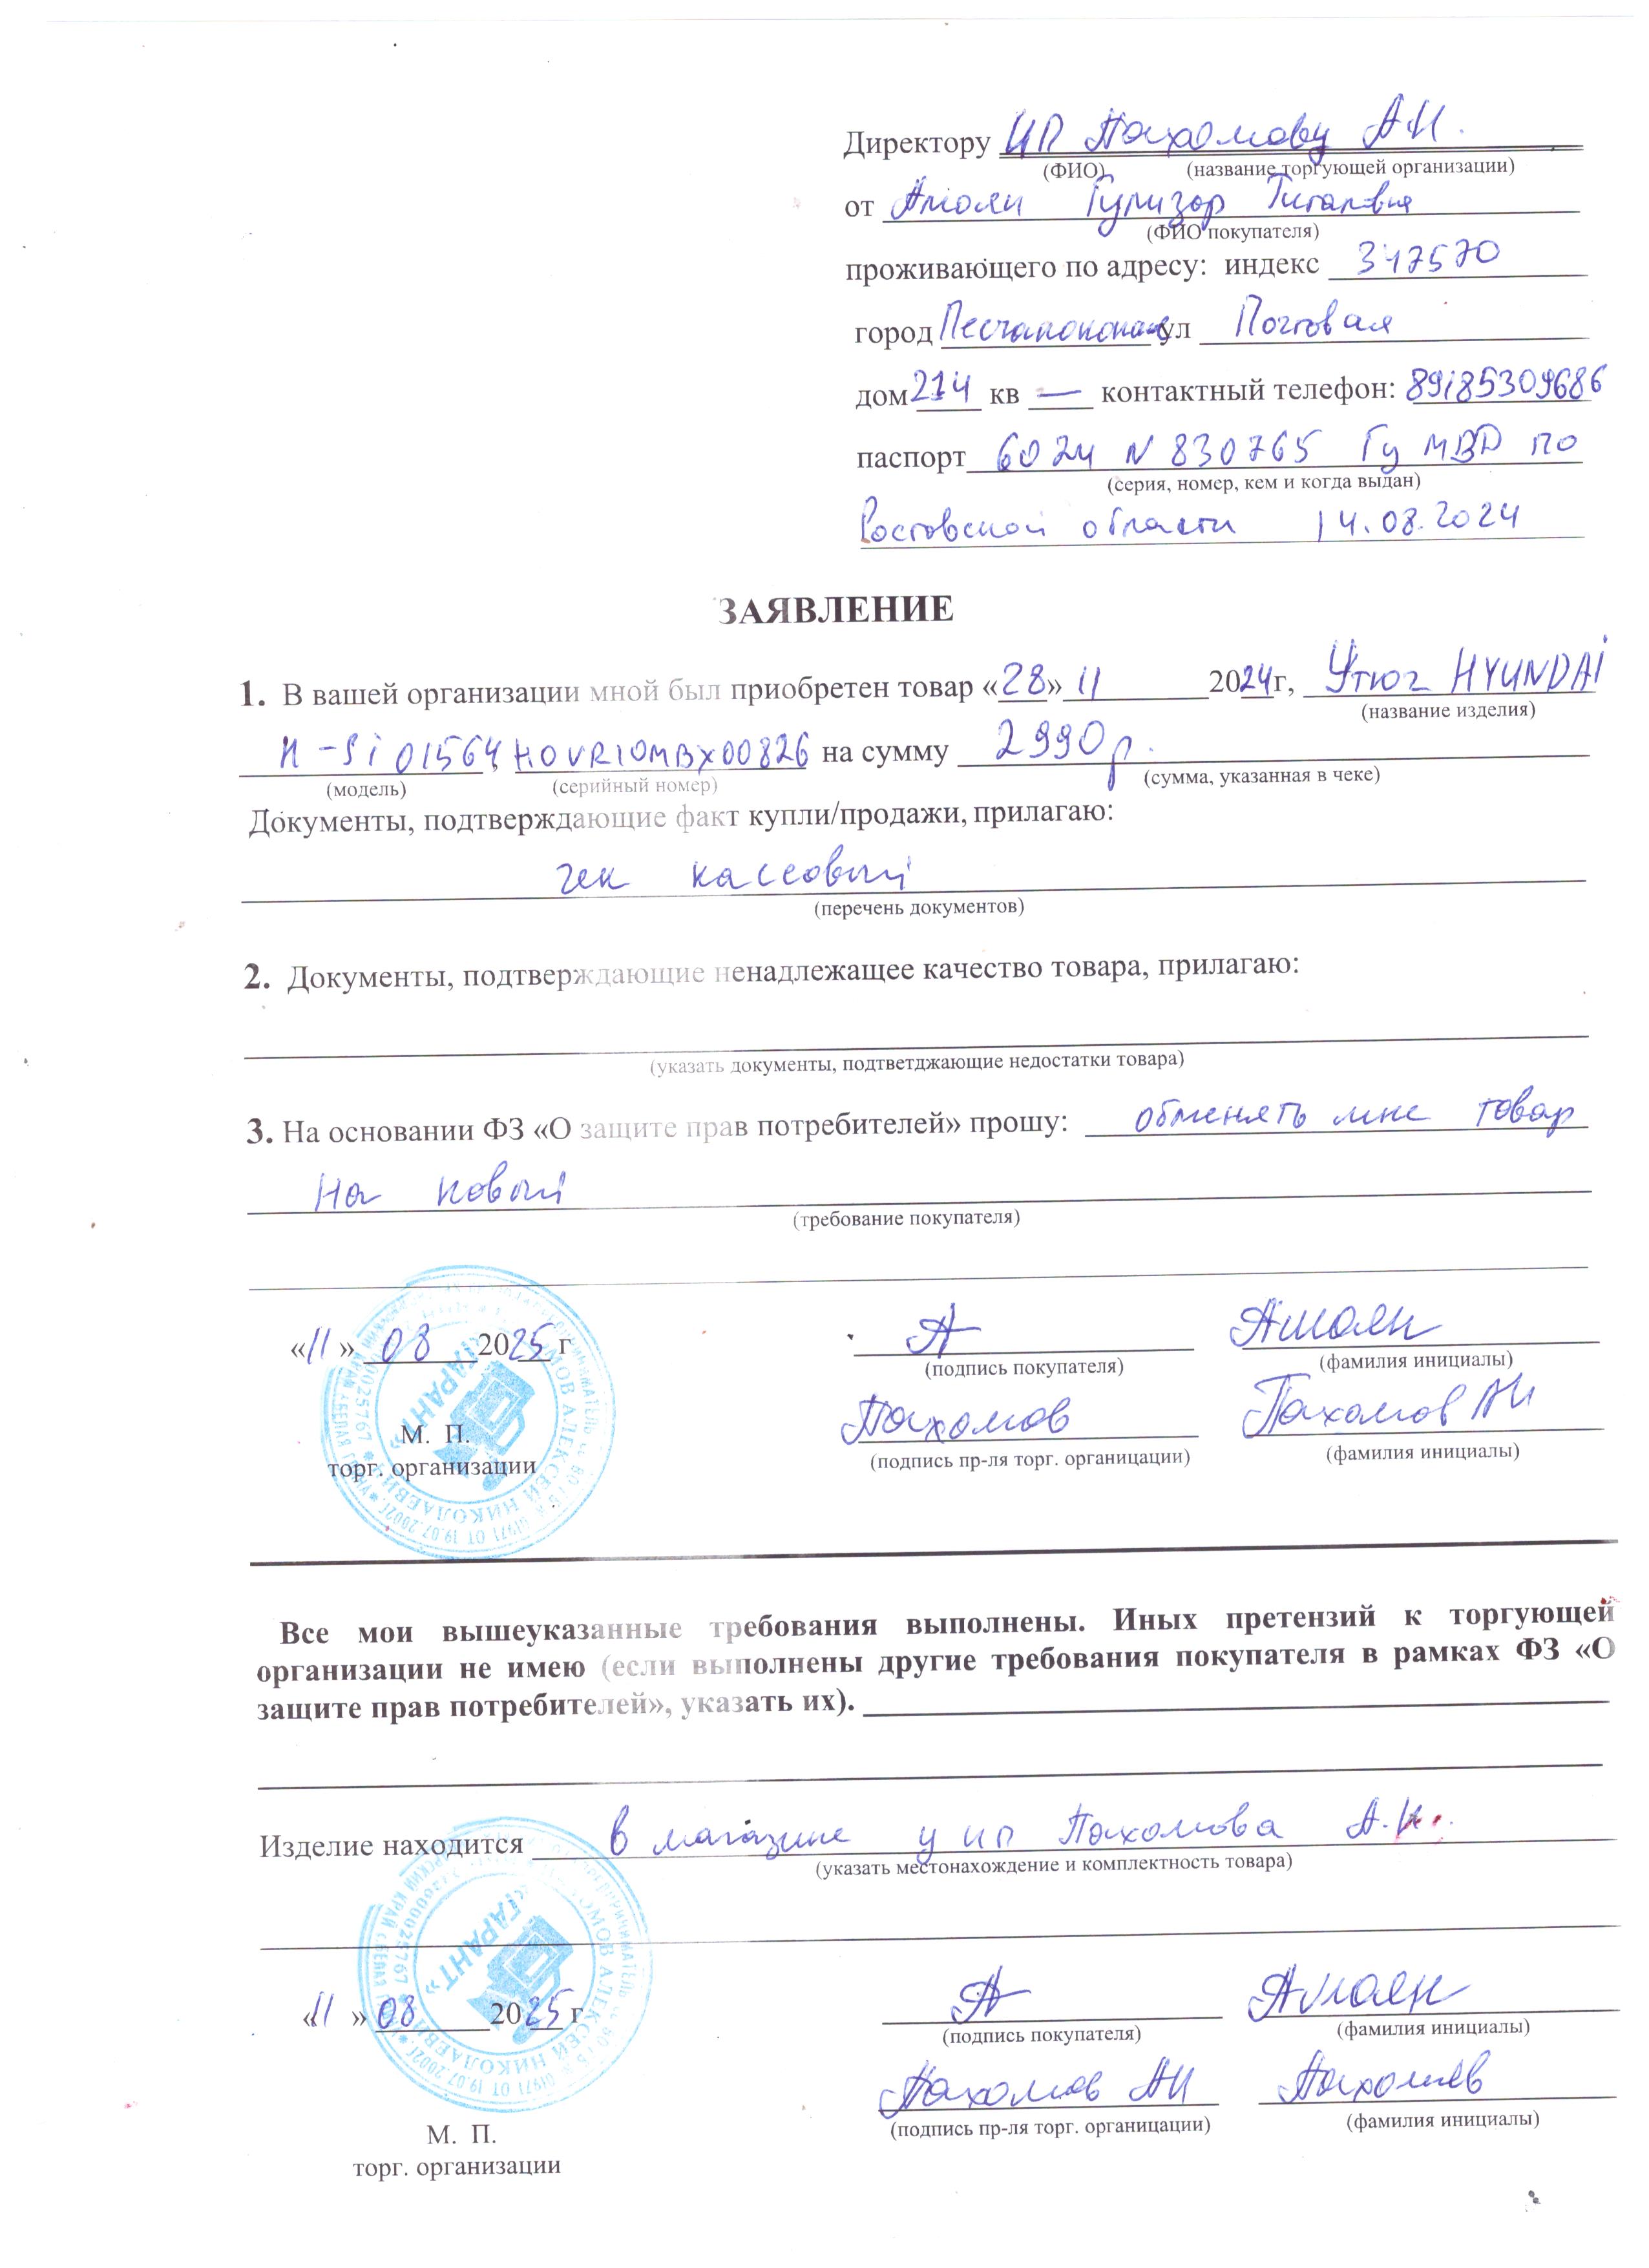 Директору ИП Пахомову А.Н.
(ФИО) (название торгующей организации)
от Амоян Гулизар Титаловна
(ФИО покупателя)
проживающего по адресу: индекс 347570
город Песчанокопское ул Почтовая
дом 214 кв — контактный телефон: 89185309686
паспорт 6024 N 830765 ГУ МВД по
(серия, номер, кем и когда выдан)
Ростовской области 14.08.2024
ЗАЯВЛЕНИЕ
1. В вашей организации мной был приобретен товар «28» 11 2024г, Утюг HYUNDAI
(название изделия)
H-Si 01564, HOVR10MBX00826 на сумму 2990р.
(модель) (серийный номер) (сумма, указанная в чеке)
Документы, подтверждающие факт купли/продажи, прилагаю:
чек кассовый
(перечень документов)
2. Документы, подтверждающие ненадлежащее качество товара, прилагаю:
(указать документы, подтветджающие недостатки товара)
3. На основании ФЗ «О защите прав потребителей» прошу: обменять мне товар
на новый
(требование покупателя)
«11» 08 2025 г Амоян
(подпись покупателя) (фамилия инициалы)
Пахомов Пахомов АН
М. П.
(подпись пр-ля торг. органицации) (фамилия инициалы)
торг. организации
Все мои вышеуказанные требования выполнены. Иных претензий к торгующей
организации не имею (если выполнены другие требования покупателя в рамках ФЗ «О
защите прав потребителей», указать их).
Изделие находится в магазине у ИП Пахомова А.Н.
(указать местонахождение и комплектность товара)
«11» 08 2025 г Амоян
(подпись покупателя) (фамилия инициалы)
Пахомов АН Пахомов
(подпись пр-ля торг. органицации) (фамилия инициалы)
М. П.
торг. организации